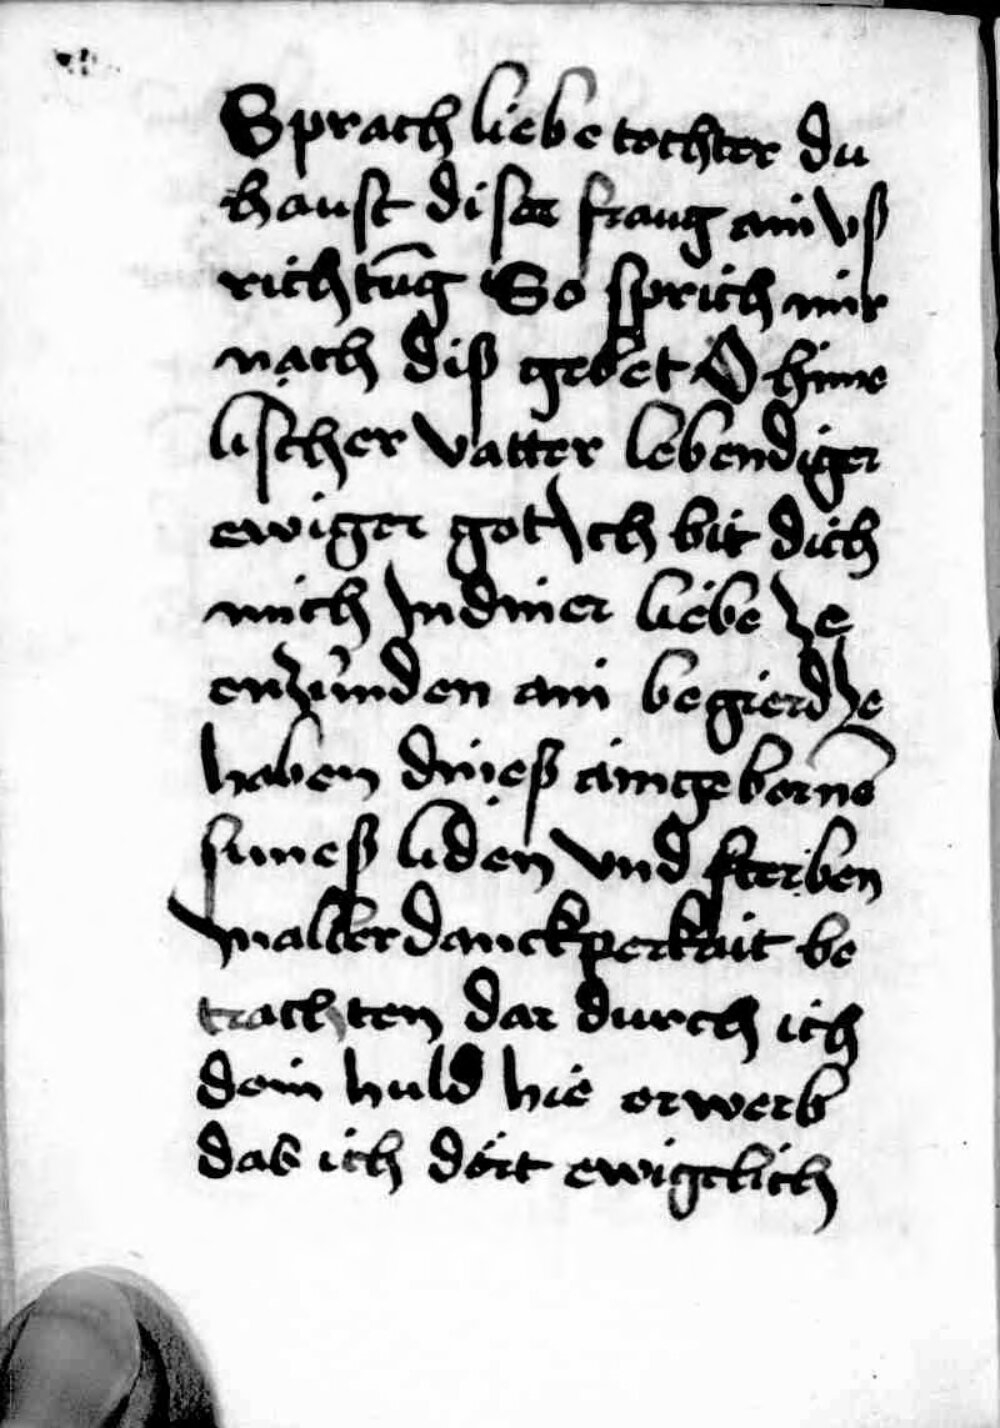 Sprach liebe tochter du
haust diser fraug ain vß
richtūg So sprich mir
nach diß gebet O hime
lischer vatter lebendiger
ewiger got Ich bit dich
mich In diner liebe ze
enzünden ain begierd ze
haben dineß aingebornē
suneß liden vnd sterben
In aller danckperkait be
trachten dar durch ich
dein huld hie erwerb
das ich dört ewigclich